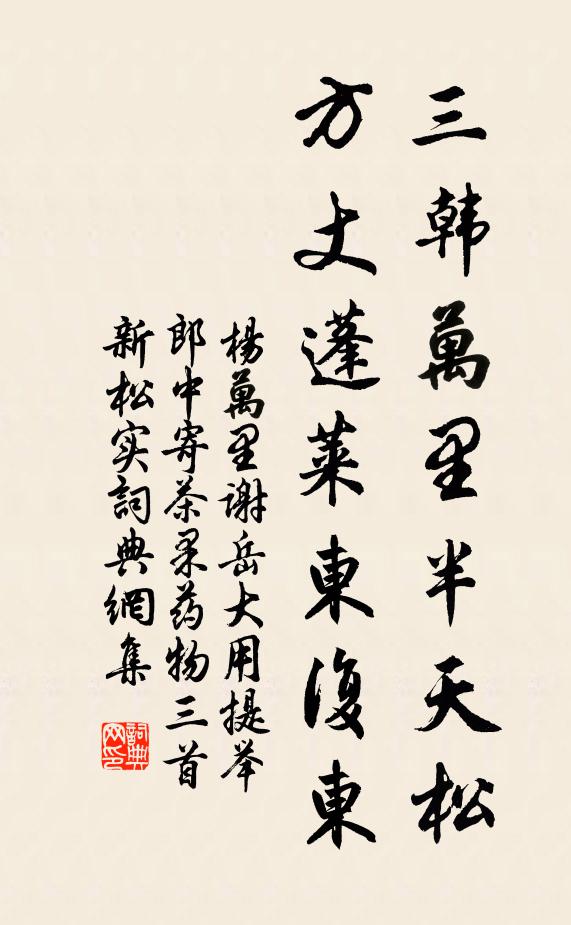 三韩萬里半天松
方丈蓬莱東復東
楊萬里谢岳大用提举
郎中寄茶果药物三首
新松实詞典網集
詞典
网印